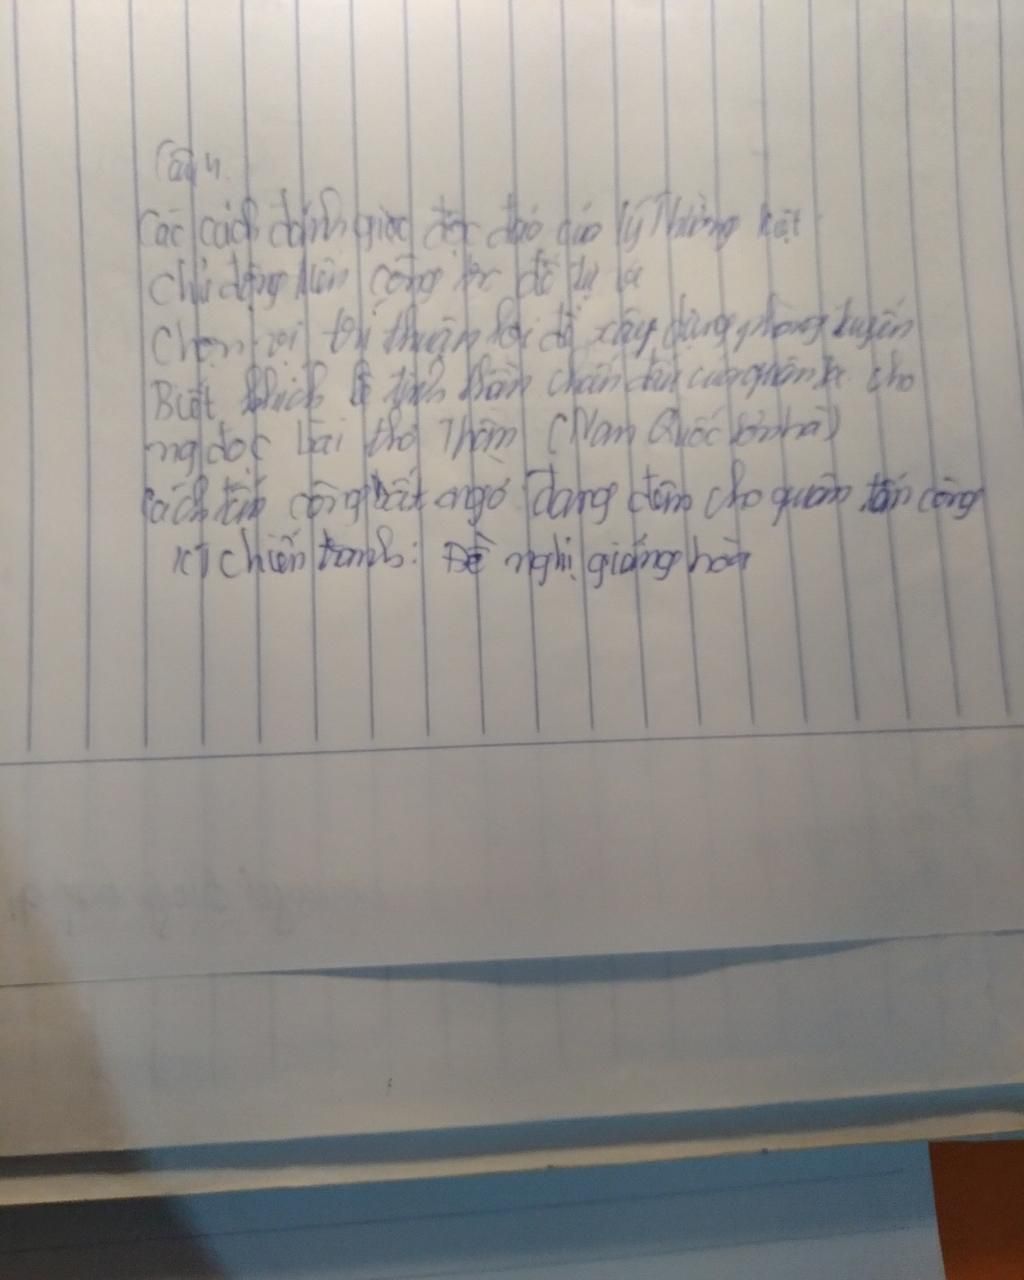 Câu 4.
Các cách đánh giặc độc đáo của Lý Thường Kiệt
Chủ động tiến công để tự
Chọn vị trí thuận lợi để xây dựng phòng tuyến
Biết khích lệ tinh thần chiến đấu của quân ta cho
ng đọc bài thơ Thần (Nam Quốc Sơn hà)
Cách tấn công bất ngờ đang đêm cho quân tấn công
KT chiến tranh: Đề nghị giảng hoà